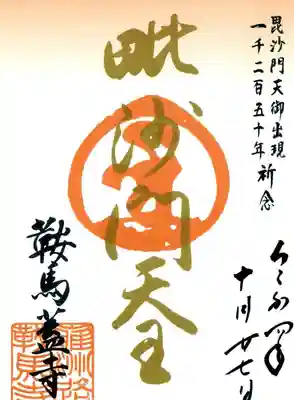 毘沙門天御出現
一千二百五十年 祈念
十月廿七日
毗沙門天王
鞍馬蓋寺